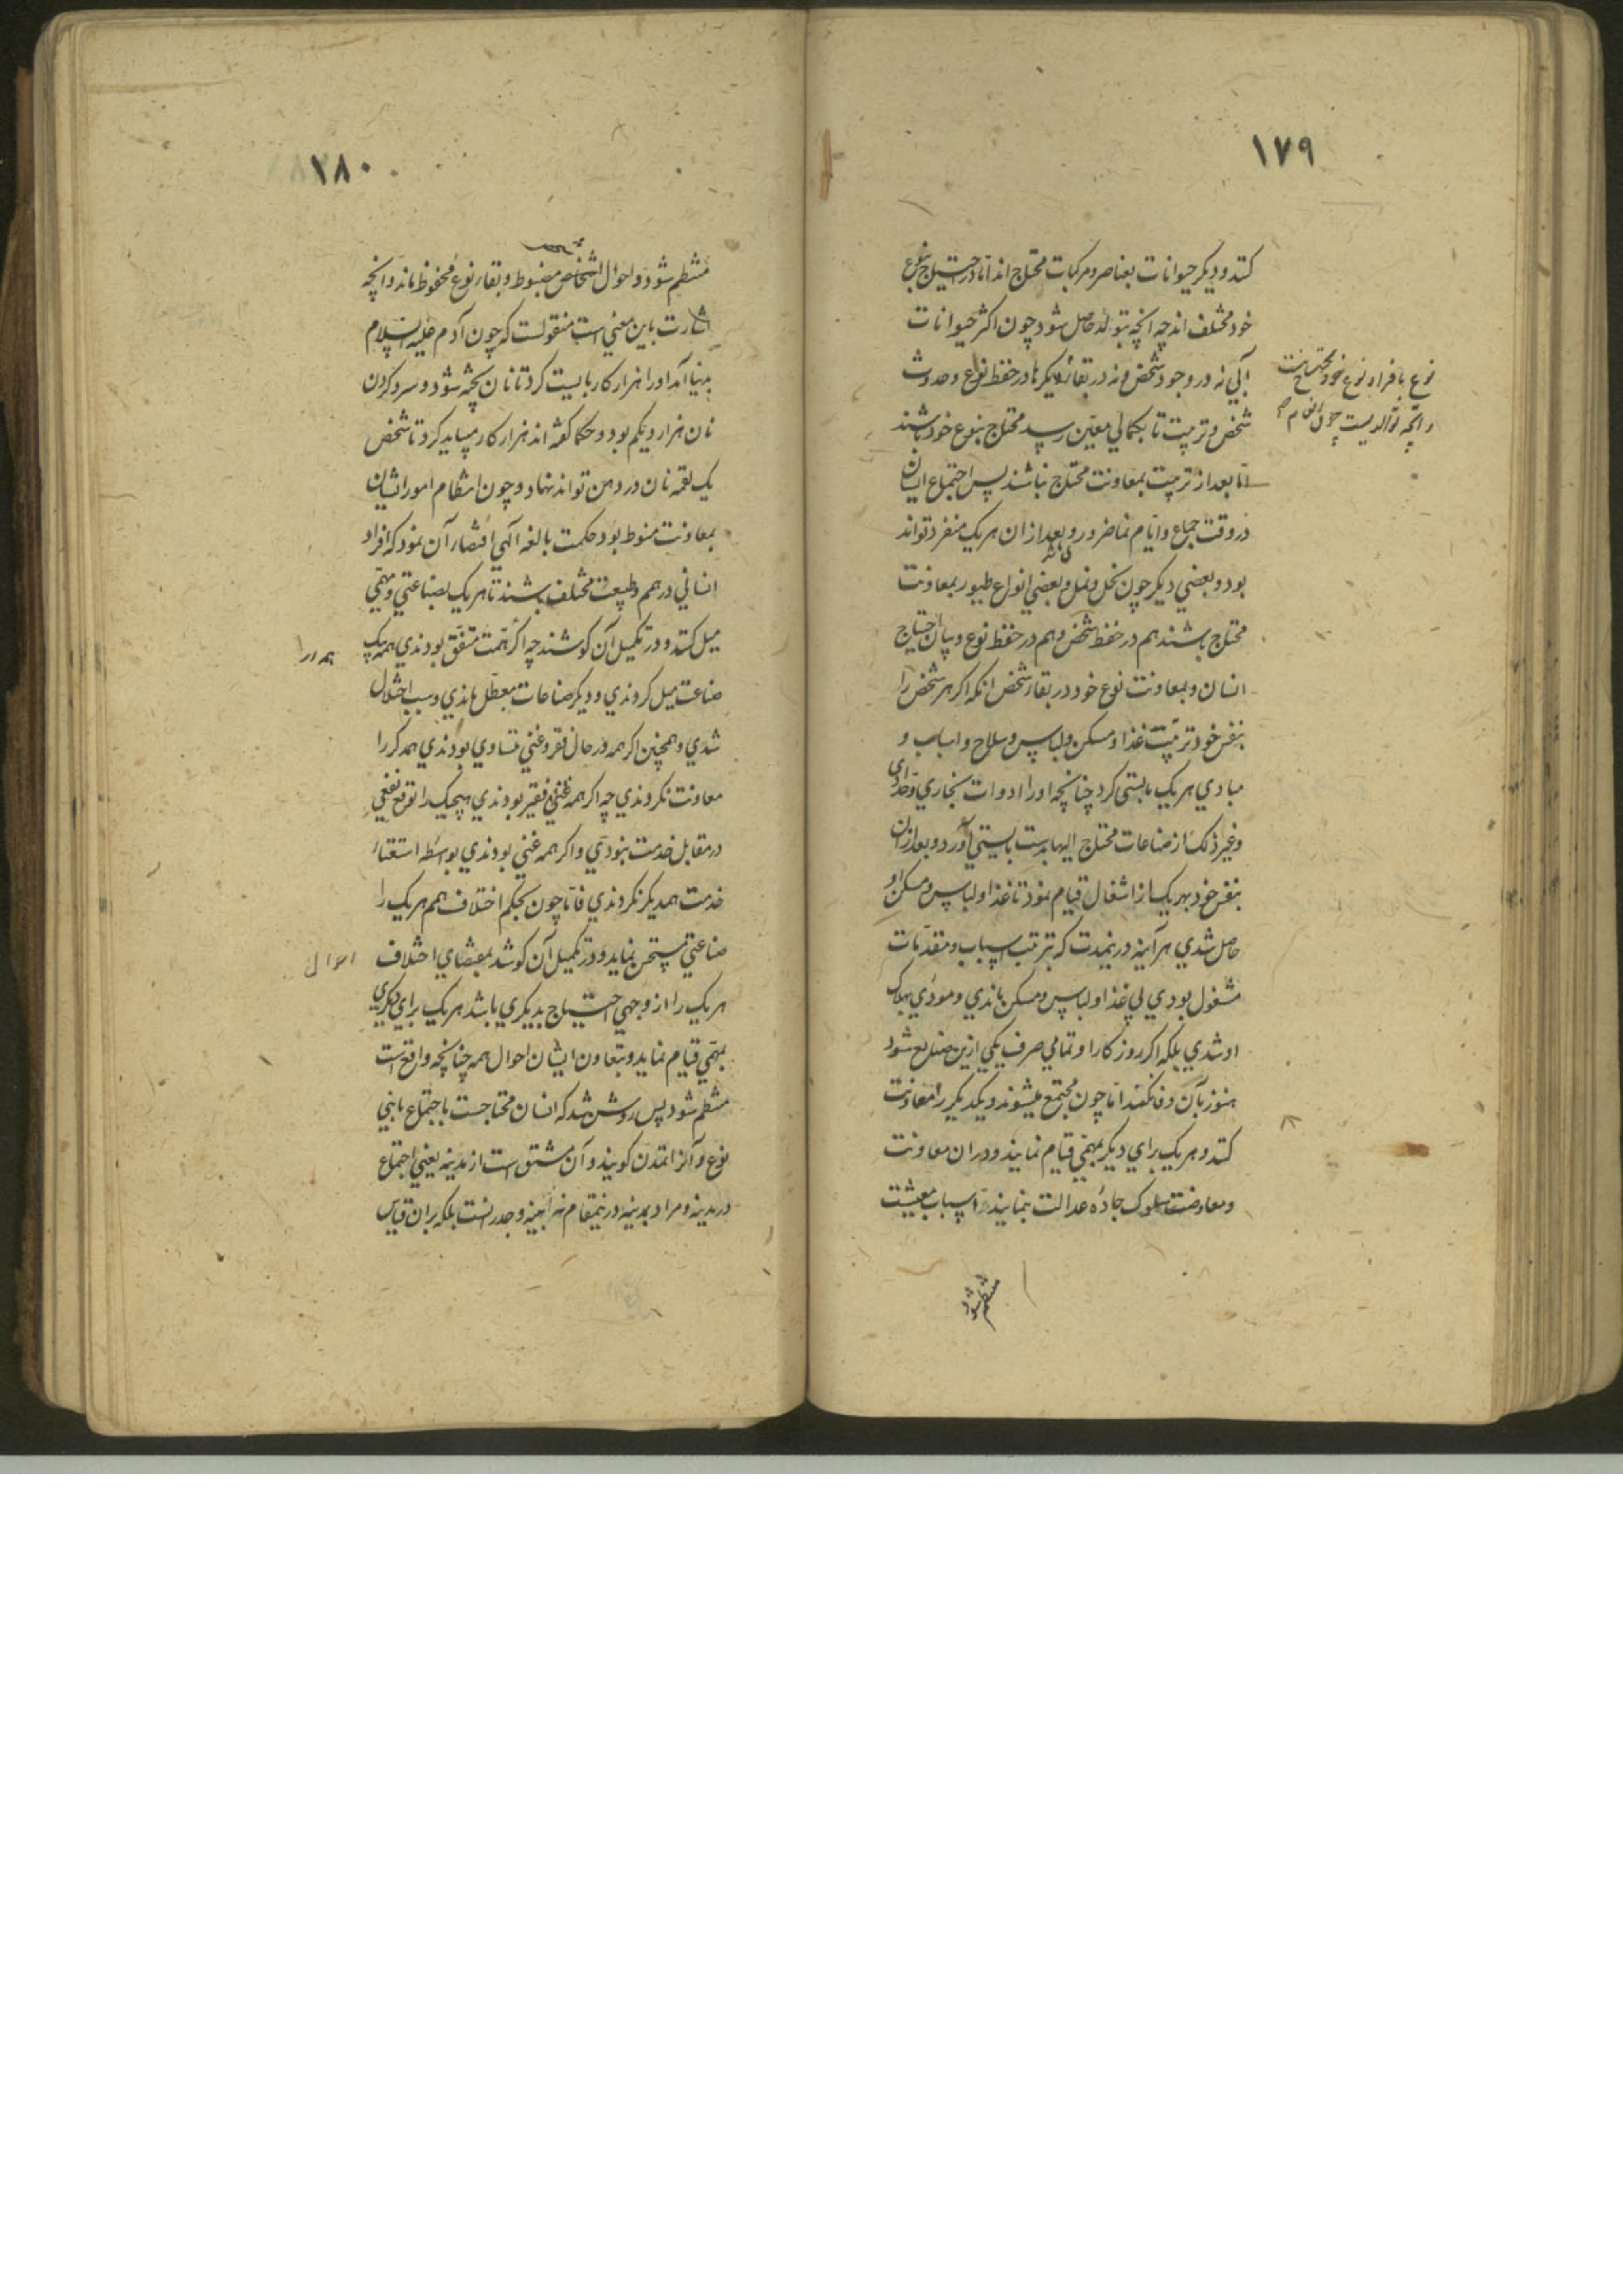 ١٧٩
كنند و ديكر حيوانات بعناصر و مركبات محتاج اند اما در احتياج بنوع
خود مختلف اند چه انچه بتولد حاصل شود چون اكثر حيوانات
آبي نه در وجود شخص و نه در بقاء و ديكرها در حفظ نوع و حدوث
شخص و تربيت تا بكمالي معين رسيد محتاج بنوع خود باشند
اما بعد از تربيت بمعاونت محتاج نباشند پس اجتماع ايشان
در وقت جماع و ايام نما ضرور و بعد از ان هر يك منفرد تواند
بود و بعضي ديكر چون نحل و نمل و بعضي انواع طيور بمعاونت
محتاج باشند هم در حفظ شخص و هم در حفظ نوع و بيان احتياج
انسان و بمعاونت نوع خود در بقاء شخص انكه اكر هر شخص را
بنفس خود ترتيب غذا و مسكن و لباس و سلاح و اسباب و
مبادي هر يك بايستي كرد چنانچه او را ادوات نجاري و حدادي
و غير ذلك از صناعات محتاج اليها بدست بايستي آورد و بعد از ان
بنفس خود بهر يك از اشغال قيام نمود تا غذا و لباس و مسكن او
حاصل شدي هر آينه درينمدت كه بترتيب اسباب و مقدمات
مشغول بودي بي غذا و لباس و مسكن ماندي و مودي بهلاك
او شدي بلكه اكر روزكار او تمامي صرف يكي ازين صنايع شود
هنوز بآن وفا نكند اما چون مجتمع ميشوند و يكديكر را معاونت
كنند و هر يك براي ديكر بمهمي قيام نمايند و در ان معاونت
و معاوضت سلوك جاده عدالت بنمايند اسباب معيشت
منتظم شود
نوع بافراد نوع خود محتاج نيست
و انچه توالديست چون
١٨٠
منتظم شود و احوال اشخاص مضبوط و بقاء نوع محفوظ ماند و انچه
اشارت باين معني است منقولست كه چون آدم عليه السلام
بدنيا آمد او را هزار كار بايست كرد تا نان پخته شود و سرد كردن
نان هزار و يكم بود و حكما كفته اند هزار كار ميبايد كرد تا شخص
يك لقمه نان در دهن تواند نهاد و چون انتظام امور ايشان
بمعاونت منوط بود حكمت بالغه الهي اقتضاء آن نمود كه افراد
انساني در همم و طبيعت مختلف باشند تا هر يك بصناعتي و مهمي
ميل كنند و در تكميل آن كوشند چه اكر همت متفق بودندي همه بيك
صناعت ميل كردندي و ديكر صناعات معطل ماندي و سبب اختلال
شدي و همچنين اكر همه در حال فقر و غني متساوي بودندي همدكر را
معاونت نكردندي چه اكر همه فقير بودندي هيچيك را توقع نفعي
در مقابل خدمت نبودي و اكر همه غني بودندي بواسطه استغناء
خدمت همديكر نكردندي فاما چون بحكم اختلاف همم هر يك را
صناعتي مستحسن نمايد و در تكميل آن كوشد بمقتضاي اختلاف
هر يك را از وجهي احتياج بديكري باشد هر يك براي ديكري
بمهمي قيام نمايد و بتعاون ايشان احوال همه چنانچه واقع است
منتظم شود پس روشن شد كه انسان محتاجست باجتماع با بني
نوع و آنرا تمدن كويند و آن مشتق است از مدينه يعني اجتماع
در مدينه و مراد بمدينه درينمقام نه ابنيه و جدرانست بلكه بران قياس
همه را
احوال